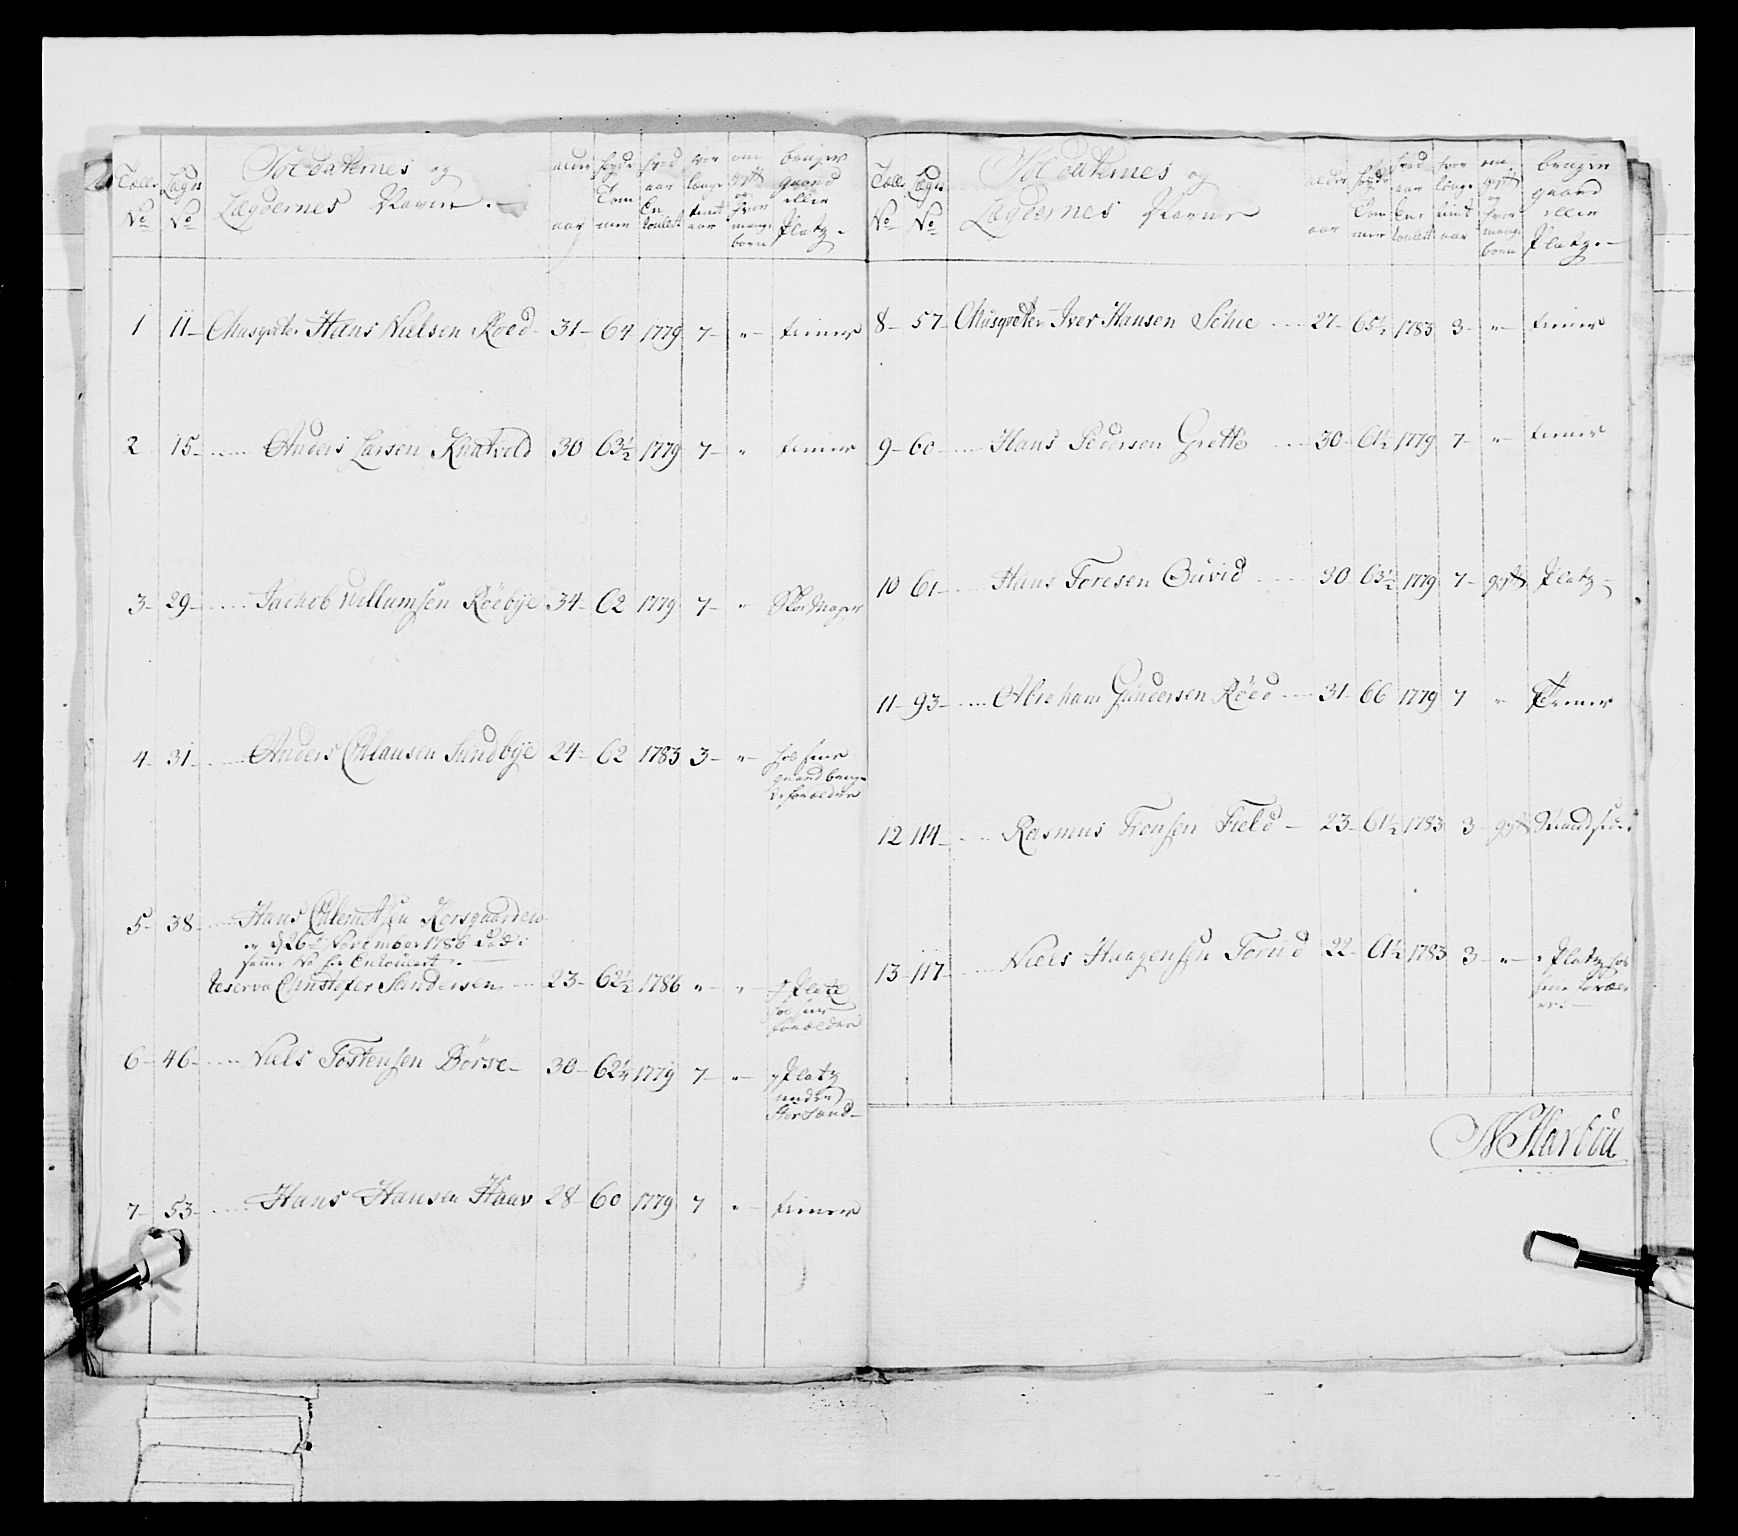 Tall No Lægs No Soldaternes og Lægdernes Navne alder aar høyde Tommer hvad aar Enroulert hvor lenge tient aar om gift og hvor mange børn bruger gaard eller Platz
1 11 Musqueter Hans Nielsen Roed 31 64 1779 7 " tiener
2 15 Anders Larsen Knatvold 30 63½ 1779 7 " tiener
3 29 Jachob Willumsen Röebye 34 62 1779 7 "
4 31 Anders Chlausen Sundbye 24 62 1783 3 " hos sine
gaard bruge
forældre
5 38 Hans Clemetsen Korsgaarden
er d 26 November 1786 død i
samme No er Enroulert
Reserve Christofer Andersen 23 62½ 1786 " " Platz
hos sine
forældre
6 46 Niels Tostensen Börse 30 62¼ 1779 7 " Platz
under
Storsand
7 53 Hans Hansen Haav 28 60 1779 7 " tiener
Tall No Lægs No Soldaternes og Lægdernes Navne alder aar høyde Tommer hvad aar Enroulert hvor lenge tient aar om gift og hvor mange børn bruger gaard eller Platz
8 57 Musqueter Iver Hansen Schie 27 65½ 1783 3 " tiener
9 60 Hans Pedersen Grette 30 61½ 1779 7 " tiener
10 61 Hans Toresen 30 63½ 1779 7 gift Platz
11 93 Abraham Gundersen Röed 31 66 1779 7 " Tiener
12 114 Rasmus Trensen Field 23 61½ 1783 3 gift Strandsidder
13 117 Niels Haagensen Torud 22 61½ 1783 3 " Platz hos
sine foræl
der